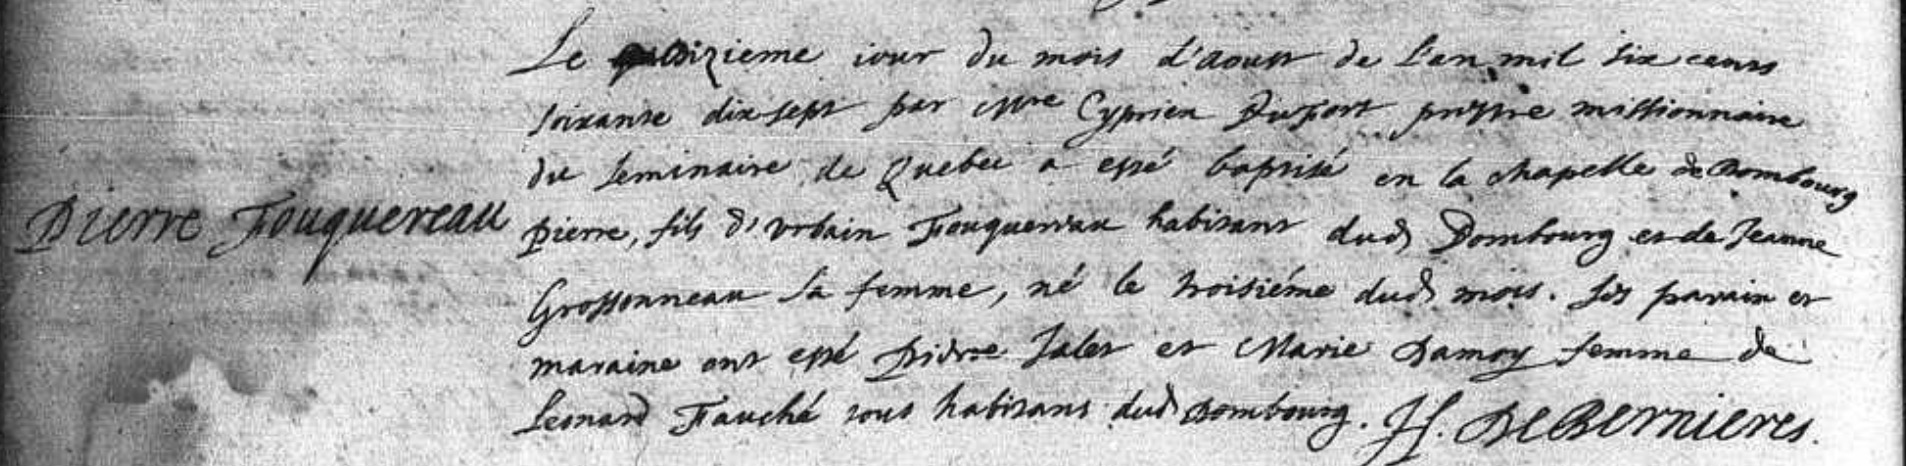 Le dizieme iour du mois d'aoust de l'an mil six cents
soixante dix sept par Mre Cyprien Dufort prestre missionnaire
du seminaire de Quebec a esté baptisé en la chapelle de Dombourg
Pierre Fouquereau
pierre, fils d'urbain Fouquereau habitant dud Dombourg et de Jeanne
Grossonneau sa femme, né le troisiéme dud mois. Ses parain et
maraine ont esté Pierre Jalet et Marie Damoy femme de
Leonard Fauché tous habitans dud Dombourg. H. DeBernieres.